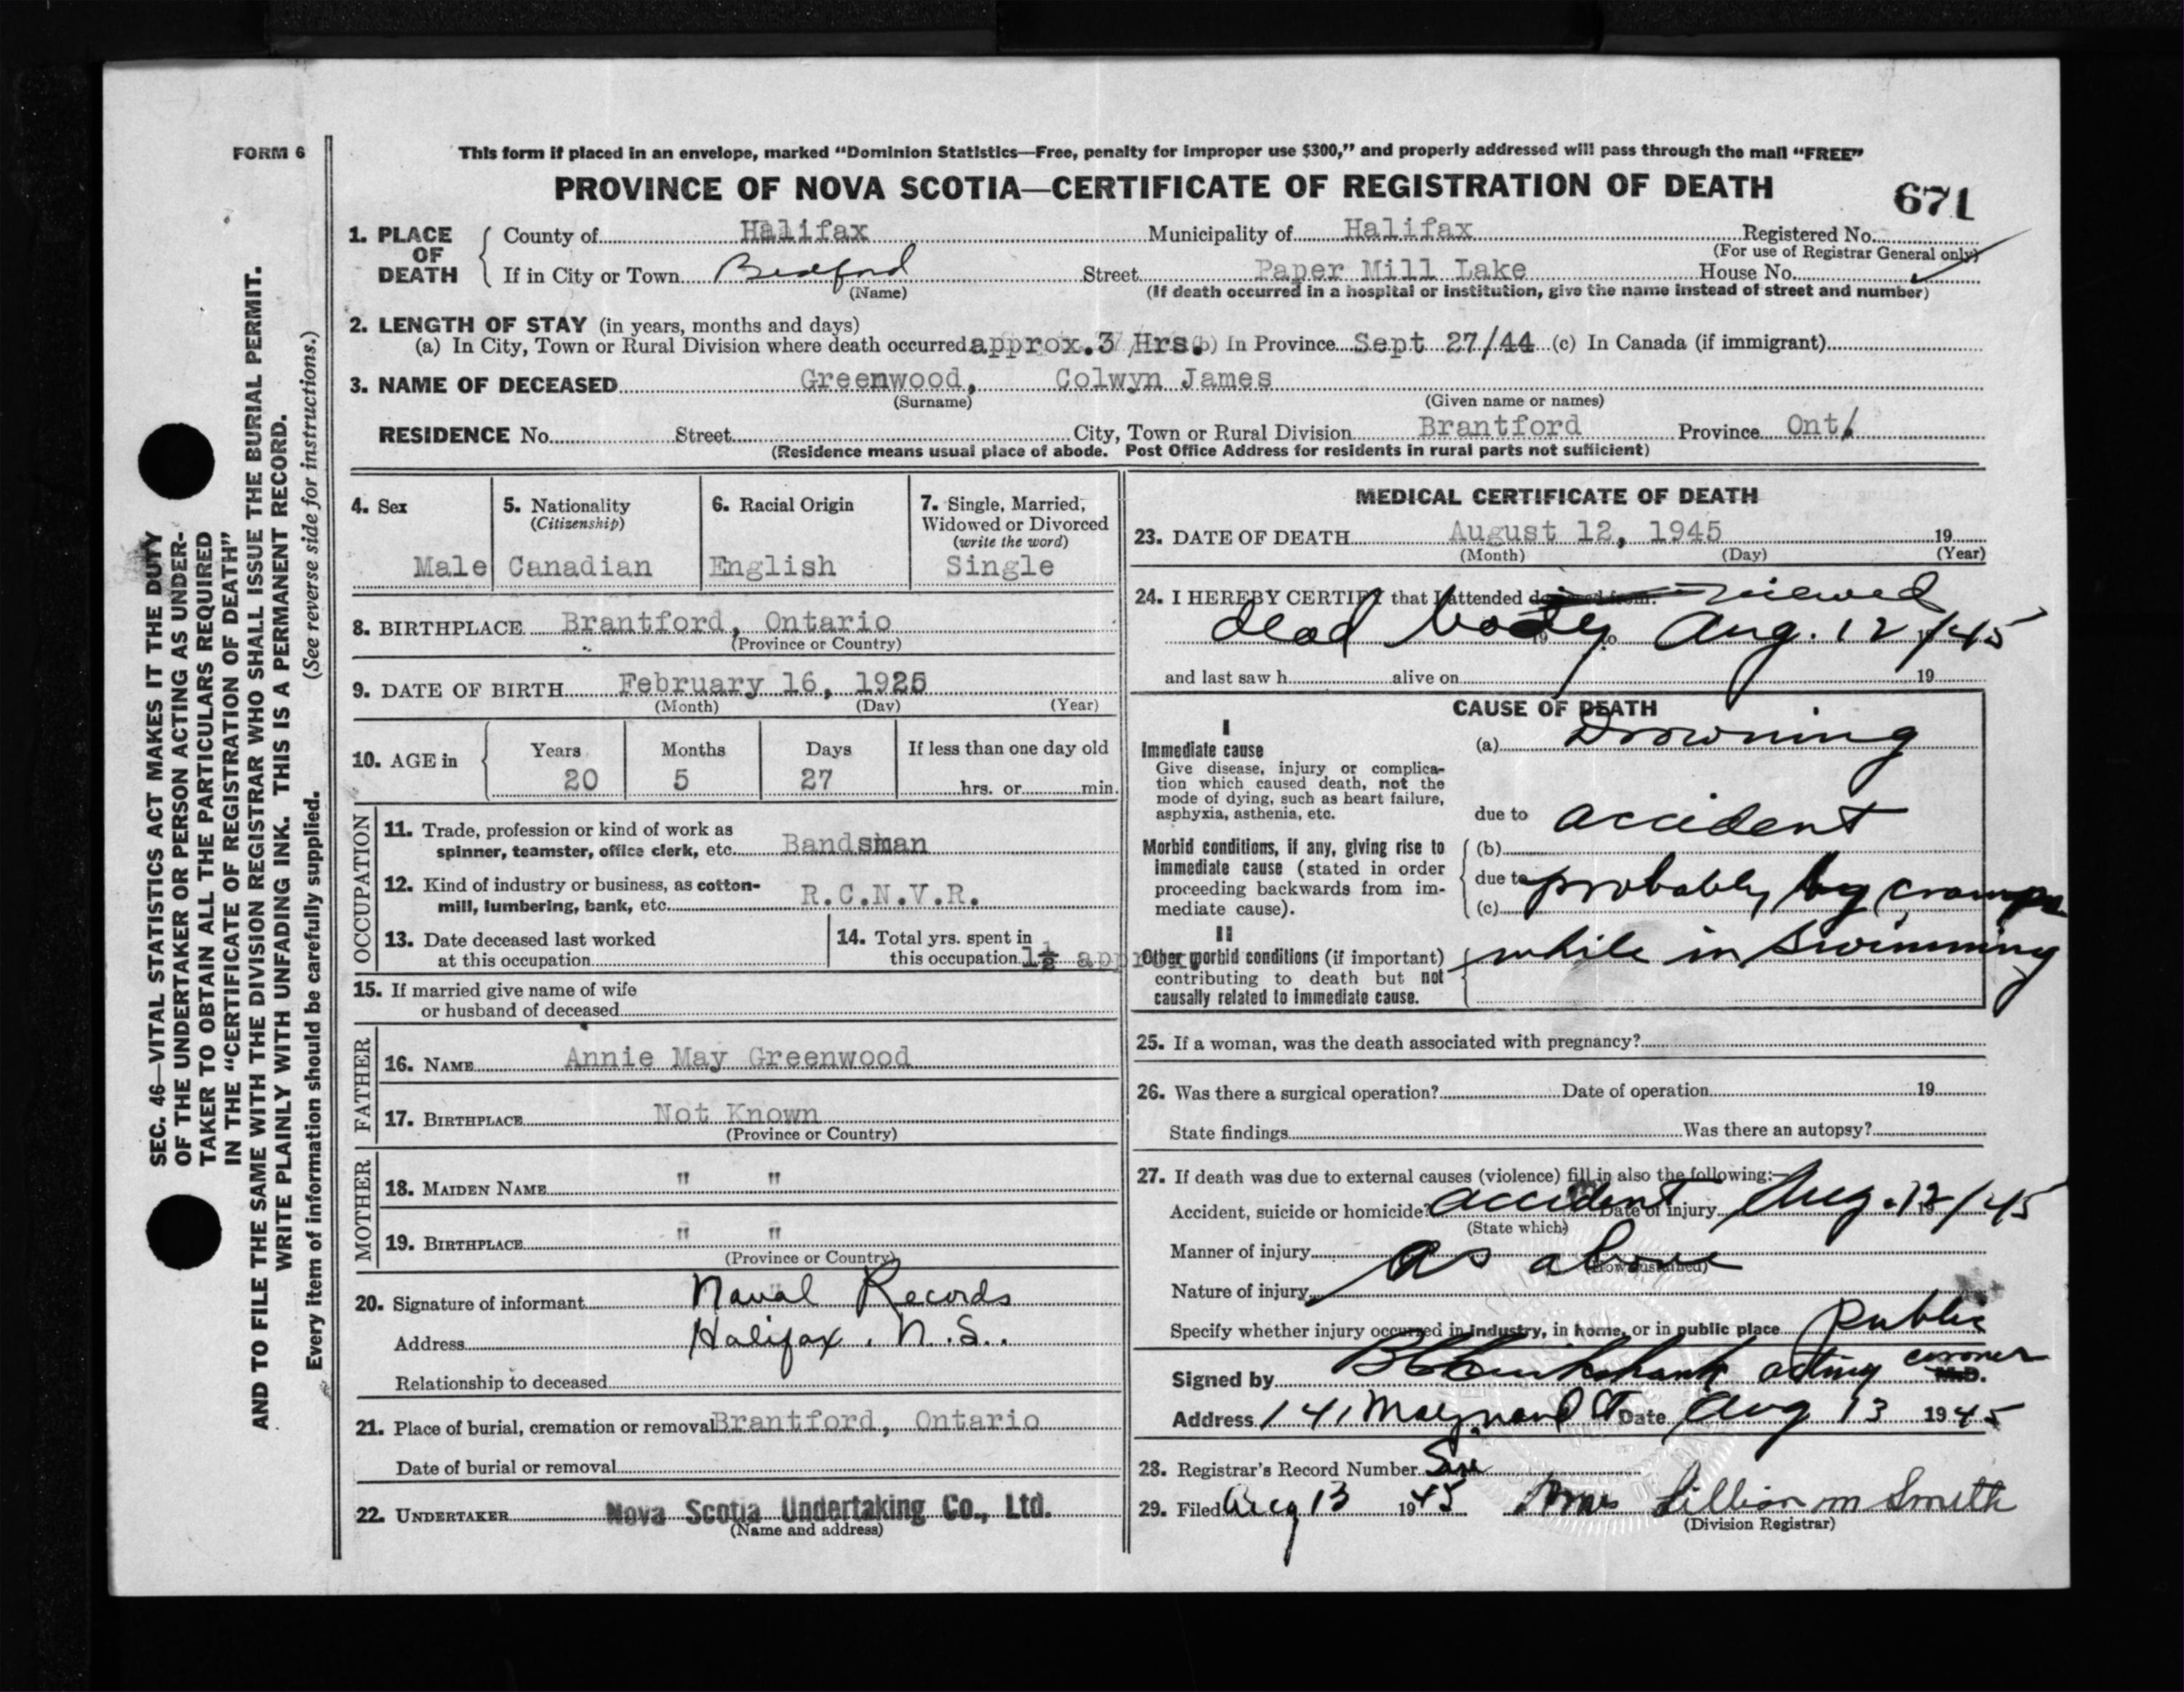 FORM 6
This form if placed in an envelope, marked “Dominion Statistics—Free, penalty for improper use $300,” and properly addressed will pass through the mail “FREE”
PROVINCE OF NOVA SCOTIA—CERTIFICATE OF REGISTRATION OF DEATH
671
1. PLACE OF DEATH
County of Halifax Municipality of Halifax Registered No.
(For use of Registrar General only)
If in City or Town Bedford Street Paper Mill Lake House No.
(Name) (If death occurred in a hospital or institution, give the name instead of street and number)
2. LENGTH OF STAY (in years, months and days)
(a) In City, Town or Rural Division where death occurred approx. 3 Hrs. (b) In Province Sept 27/44 (c) In Canada (if immigrant)
3. NAME OF DECEASED Greenwood, Colwyn James
(Surname) (Given name or names)
RESIDENCE No. Street City, Town or Rural Division Brantford Province Ont.
(Residence means usual place of abode. Post Office Address for residents in rural parts not sufficient)
4. Sex
Male
5. Nationality
(Citizenship)
Canadian
6. Racial Origin
English
7. Single, Married,
Widowed or Divorced
(write the word)
Single
8. BIRTHPLACE Brantford, Ontario
(Province or Country)
9. DATE OF BIRTH February 16, 1925
(Month) (Day) (Year)
10. AGE in
Years Months Days If less than one day old
20 5 27 hrs. or min.
OCCUPATION
11. Trade, profession or kind of work as
spinner, teamster, office clerk, etc. Bandsman
12. Kind of industry or business, as cotton-
mill, lumbering, bank, etc. R.C.N.V.R.
13. Date deceased last worked
at this occupation
14. Total yrs. spent in
this occupation 1½ approx.
15. If married give name of wife
or husband of deceased
FATHER
16. NAME Annie May Greenwood
17. BIRTHPLACE Not Known
(Province or Country)
MOTHER
18. MAIDEN NAME " "
19. BIRTHPLACE " "
(Province or Country)
20. Signature of informant Naval Records
Address Halifax, N.S..
Relationship to deceased
21. Place of burial, cremation or removal Brantford, Ontario
Date of burial or removal
22. UNDERTAKER Nova Scotia Undertaking Co., Ltd.
(Name and address)
MEDICAL CERTIFICATE OF DEATH
23. DATE OF DEATH August 12, 1945 19
(Month) (Day) (Year)
24. I HEREBY CERTIFY that I attended deceased from: viewed
dead body Aug. 12/45
and last saw h alive on 19
CAUSE OF DEATH
I
Immediate cause
Give disease, injury or complica-
tion which caused death, not the
mode of dying, such as heart failure,
asphyxia, asthenia, etc.
(a) Drowning
due to accident
Morbid conditions, if any, giving rise to
immediate cause (stated in order
proceeding backwards from im-
mediate cause).
(b)
due to probably by cramps
(c)
II
Other morbid conditions (if important)
contributing to death but not
causally related to immediate cause.
while in swimming
25. If a woman, was the death associated with pregnancy?
26. Was there a surgical operation? Date of operation 19
State findings Was there an autopsy?
27. If death was due to external causes (violence) fill in also the following:—
Accident, suicide or homicide? accident Date of injury Aug. 12/45
(State which)
Manner of injury as above
(How sustained)
Nature of injury
Specify whether injury occurred in industry, in home, or in public place Public
Signed by acting coroner M.D.
Address 141 Maynard St Date Aug 13 1945
28. Registrar's Record Number Six
29. Filed Aug 13 1945 Mrs Lillian M Smith
(Division Registrar)
SEC. 46—VITAL STATISTICS ACT MAKES IT THE DUTY
OF THE UNDERTAKER OR PERSON ACTING AS UNDER-
TAKER TO OBTAIN ALL THE PARTICULARS REQUIRED
IN THE “CERTIFICATE OF REGISTRATION OF DEATH”
AND TO FILE THE SAME WITH THE DIVISION REGISTRAR WHO SHALL ISSUE THE BURIAL PERMIT.
WRITE PLAINLY WITH UNFADING INK. THIS IS A PERMANENT RECORD.
Every item of information should be carefully supplied. (See reverse side for instructions.)